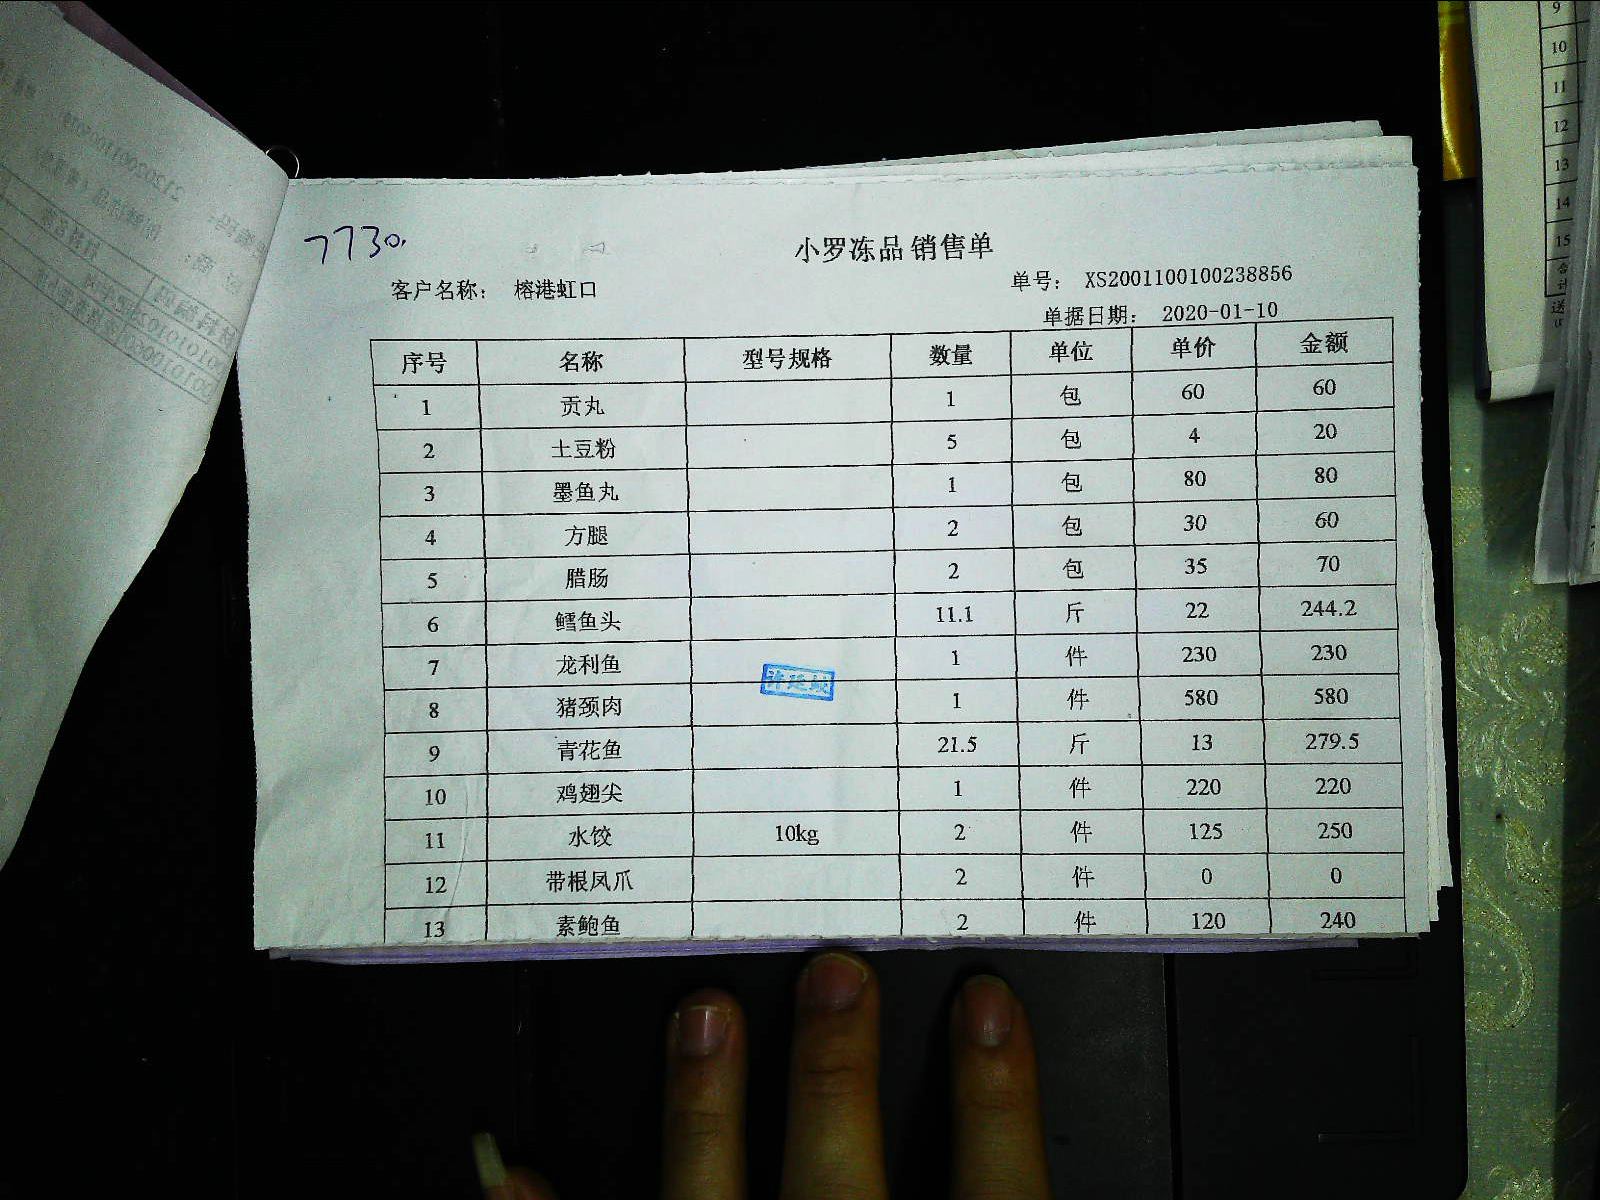 7730.
小罗冻品 销售单
客户名称： 榕港虹口
单号： XS2001100100238856
单据日期： 2020-01-10
序号 名称 型号规格 数量 单位 单价 金额
1 贡丸 1 包 60 60
2 土豆粉 5 包 4 20
3 墨鱼丸 1 包 80 80
4 方腿 2 包 30 60
5 腊肠 2 包 35 70
6 鳕鱼头 11.1 斤 22 244.2
7 龙利鱼 1 件 230 230
8 猪颈肉 1 件 580 580
9 青花鱼 21.5 斤 13 279.5
10 鸡翅尖 1 件 220 220
11 水饺 10kg 2 件 125 250
12 带根凤爪 2 件 0 0
13 素鲍鱼 2 件 120 240
9
10
11
12
13
14
15